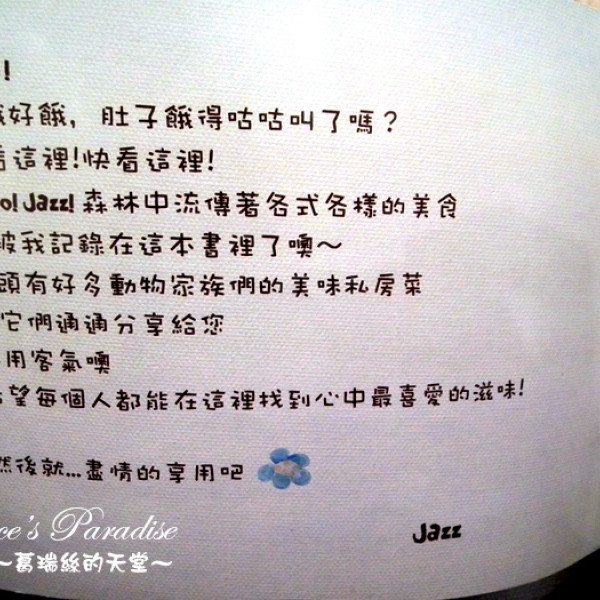 !
好餓，肚子餓得咕咕叫了嗎？
這裡!快看這裡!
o! Jazz! 森林中流傳著各式各樣的美食
被我記錄在這本書裡了噢～
頭有好多動物家族們的美味私房菜
它們通通分享給您
用客氣噢
望每個人都能在這裡找到心中最喜愛的滋味!
然後就...盡情的享用吧
Jazz
ce's Paradise
～葛瑞絲的天堂～